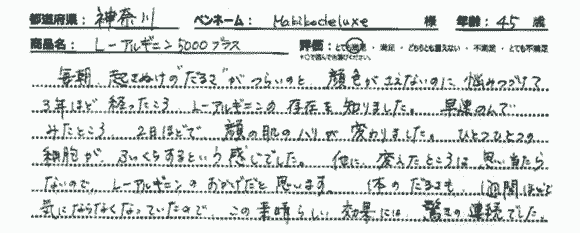 都道府県： 神奈川 ペンネーム： Makikodeluxe 様 年齢： 45 歳
商品名： L-アルギニン5000プラス 評価：とても満足 ・ 満足 ・ どちらとも言えない ・ 不満足 ・ とても不満足
※○で囲んでお選びください。
毎朝 起きぬけの“だるさ”がつらいのと、顔色がさえないのに 悩みつづけて
3年ほど 経ったころ L-アルギニンの 存在を 知りました。 早速のんで
みたところ 2日ほどで 顔の肌のハリが 変わりました。 ひとつひとつの
細胞が、ふっくらするという 感じでした。 他に 変えたところは 思い当たら
ないので、L-アルギニンの おかげだと 思います。 体の だるさも、1週間ほどで
気にならなくなっていたので、この 素晴らしい 効果には 驚きの 連続でした。